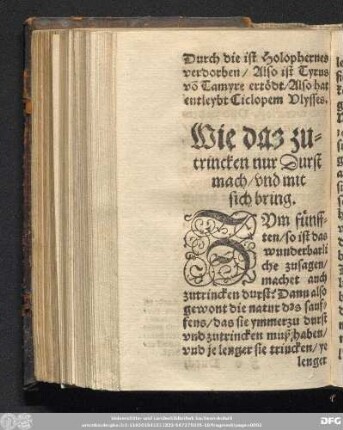 Durch die ist Holophernes
verdorben / Also ist Tyrus
võ Tamyre ertödt / Also hat
entleybt Ciclopem Vlysses.
Wie daz zu-
trincken nur Durst
mach / vnd mit
sich bring.
ZVm fünff-
ten / so ist das
wunderbarli
che zusagen /
machet auch
zutrincken durst? Dann also
gewont die natur des sauf-
fens / das sie ymmerzu durst
vnd zutrincken muß haben /
vnd je lenger sie trincken / ye
lenger